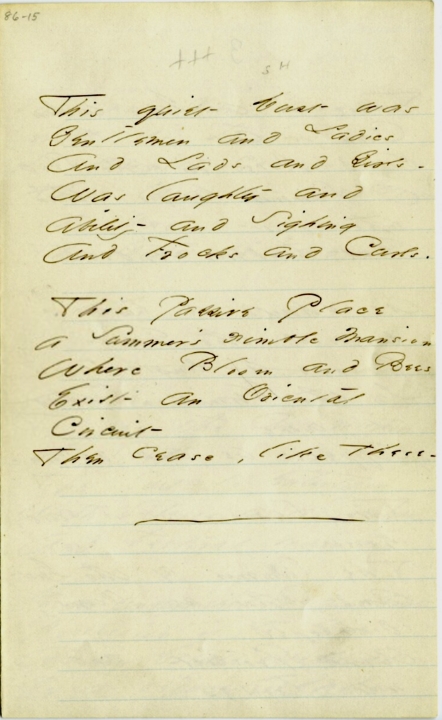 86-15
This quiet Dust was
Gentlemen and Ladies
And Lads and Girls -
Was laughter and
ability - and Sighing
And Frocks and Curls.
This Passive Place
a Summer's nimble mansion
Where Bloom and Bees
Exist an Oriental
Circuit -
Then cease, like these -